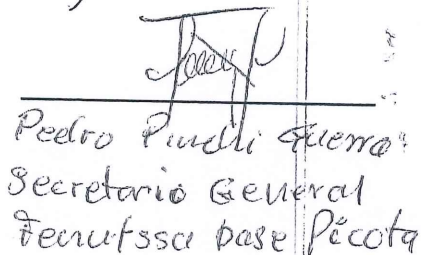 Pedro Pinelli Guerra
Secretario General
Fenutssa base Picota